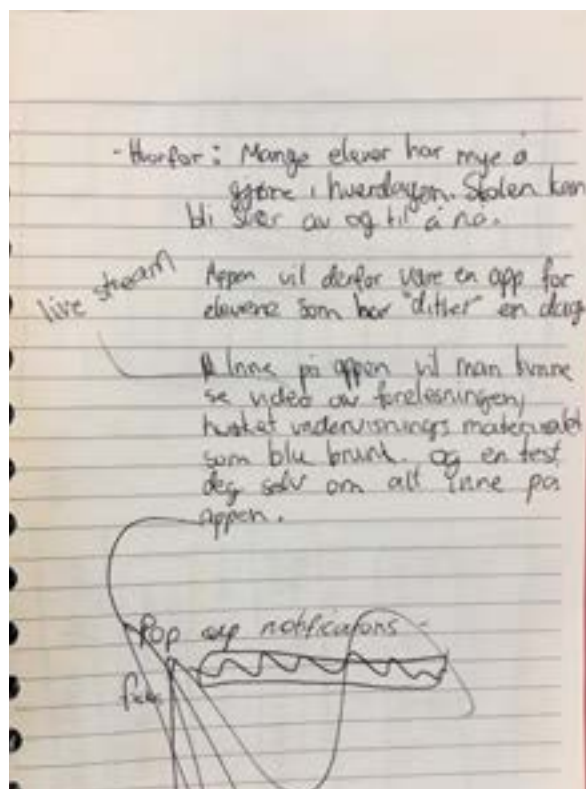 - Hvorfor: Mange elever har mye å
gjøre i hverdagen. Skolen kan
bli svær av og til å nå.
live stream
Appen vil derfor være en app for
elevene som har "ditcher" en dag
Inne på appen vil man kunne
se video av forelesningen,
hvilket undervisnings materialet
som blir brukt. og en test
deg selv om alt inne på
appen.
Pop up notifications -